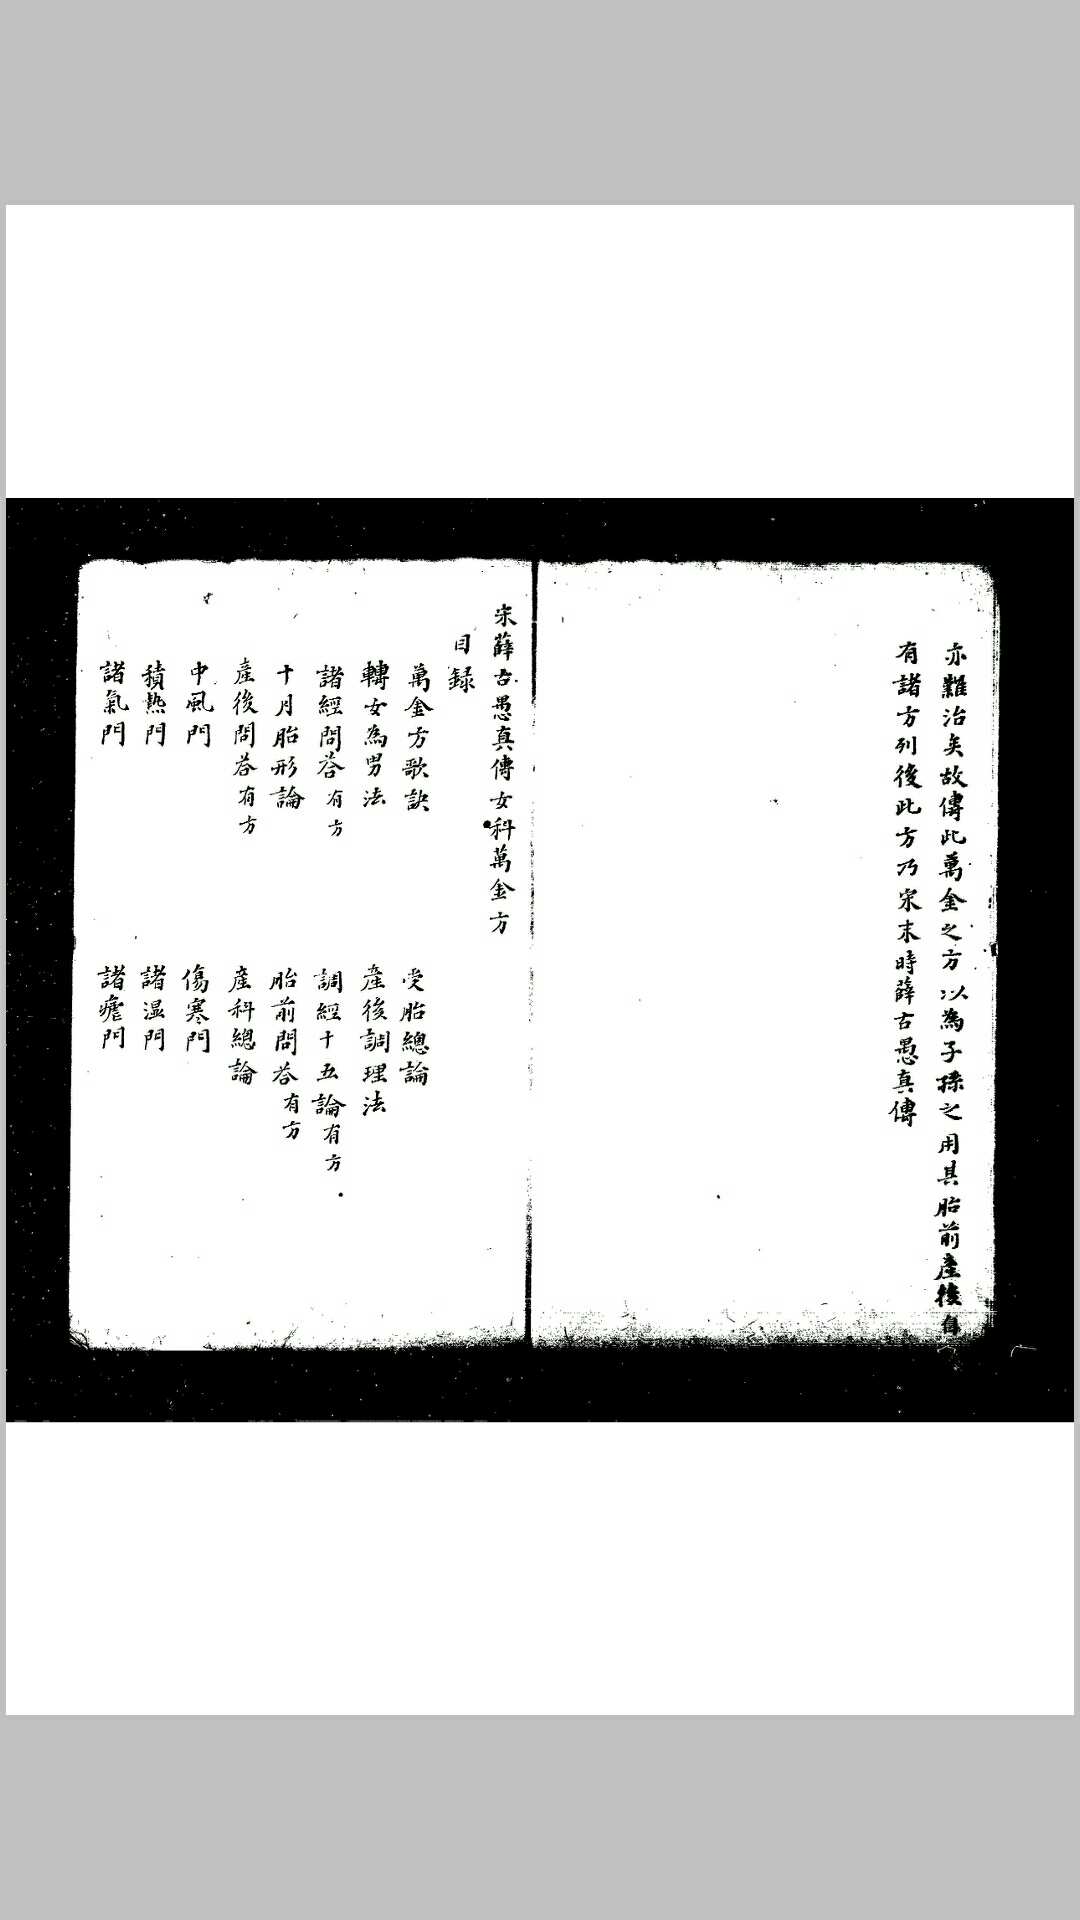 亦難治矣故傳此萬金之方以為子孫之用其胎前產後自
有諸方列後此方乃宋末時薛古愚真傳
宋薛古愚真傳女科萬金方
目録
萬金方歌訣
受胎總論
轉女為男法
產後調理法
諸經問荅有方
調經十五論有方
十月胎形論
胎前問荅有方
產後問荅有方
產科總論
中風門
傷寒門
積熱門
諸湿門
諸氣門
諸瘧門